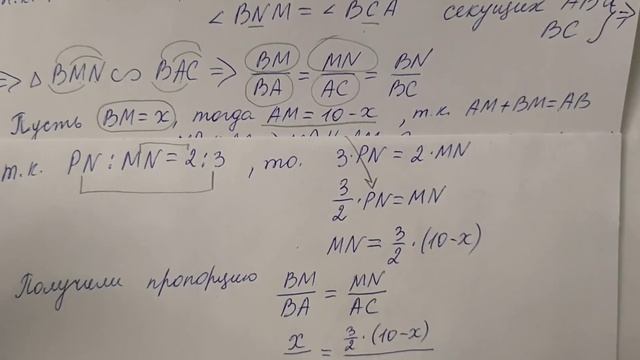 ∠BNM = ∠BCA секущих AB и
BC
=> △BMN ∽ BAC => BM/BA = MN/AC = BN/BC
Пусть BM = x, тогда AM = 10 - x, т.к. AM + BM = AB
т.к. PN : MN = 2 : 3, то. 3·PN = 2·MN
3/2·PN = MN
MN = 3/2·(10-x)
Получили пропорцию BM/BA = MN/AC
x = 3/2·(10-x)